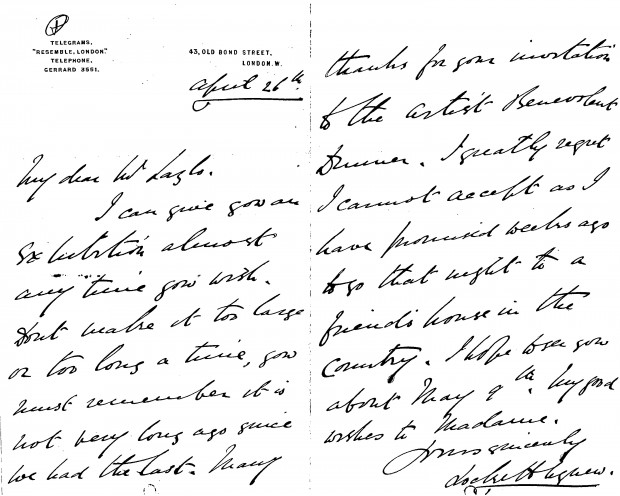 TELEGRAMS,
"RESEMBLE, LONDON."
TELEPHONE,
GERRARD 3551.
43, OLD BOND STREET,
LONDON. W.
April 26th
My dear Mr Laszlo.
I can give you an
Exhibition almost
any time you wish.
Dont make it too large
or too long a time, you
must remember it is
not very long ago since
we had the last. Many
thanks for your invitation
to the Artist Benevolent
Dinner. I greatly regret
I cannot accept as I
have promised weeks ago
to go that night to a
friend's house in the
Country. I hope to see you
about May 9th. My good
wishes to Madame.
Yours sincerely
Lockett Agnew.